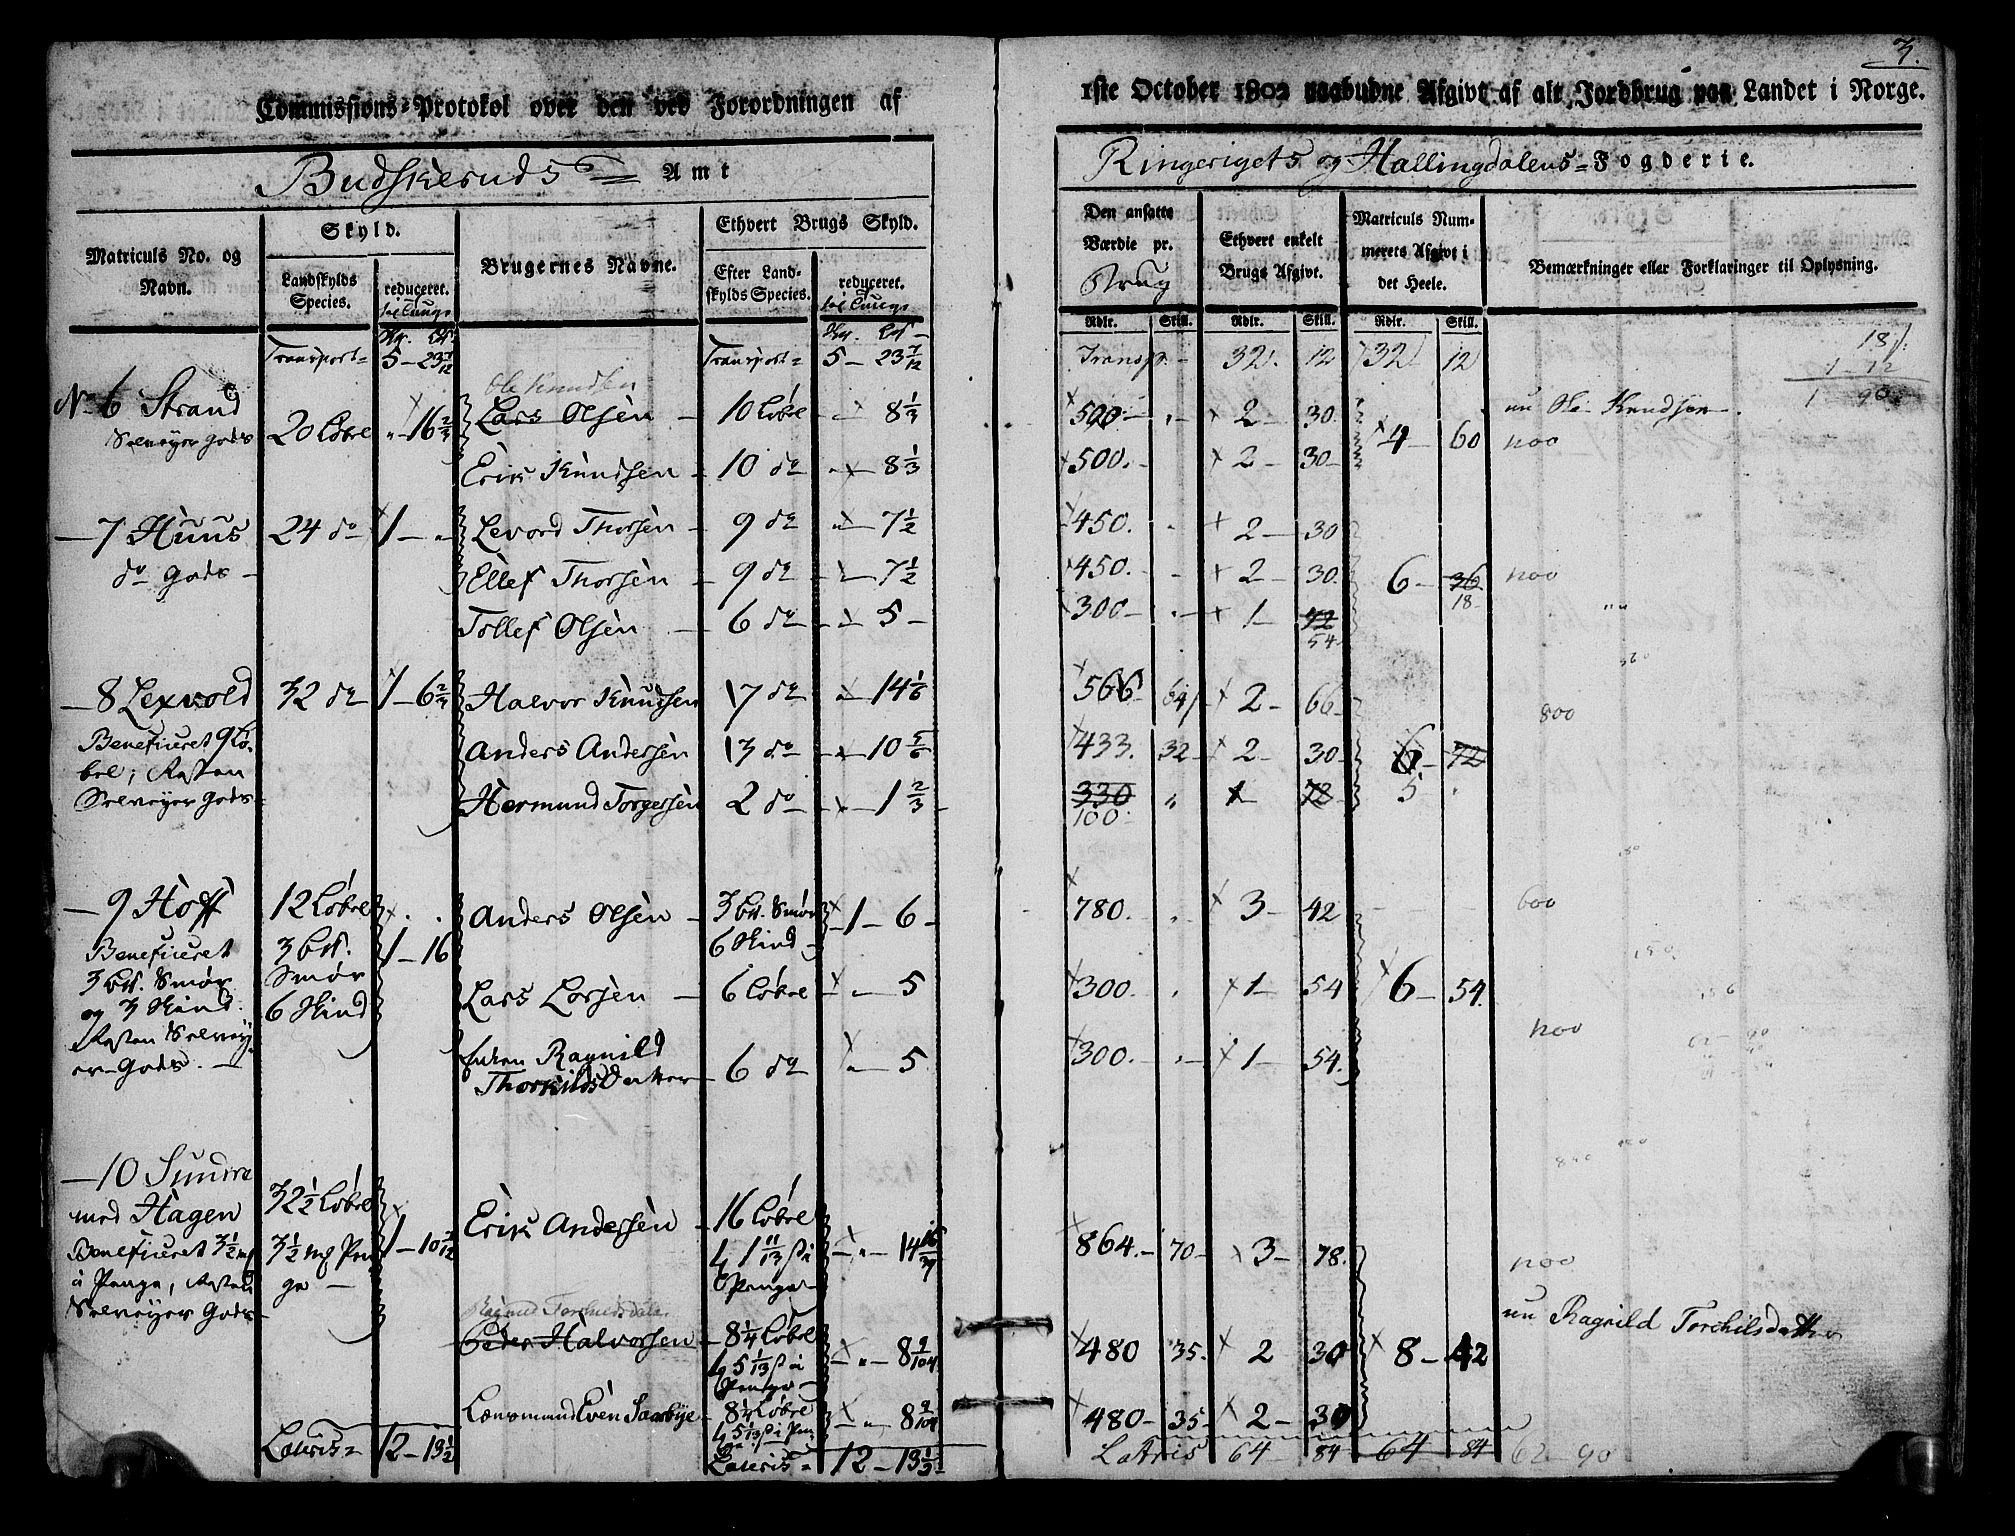 3.
Commissions-Protokol over den ved Forordningen af 1ste October 1802 paabudne Afgivt af alt Jordbrug paa Landet i Norge.
Budskeruds Amt
Ringerigets og Hallingdalens Fogderie.
Matriculs No. og Navn.
Skyld.
Landskylds Species.
reduceret.
Brugernes Navne.
Ethvert Brugs Skyld.
Efter Landskylds Species.
reduceret.
Den ansatte Værdie pr. Brug
Ethvert enkelt Brugs Afgivt.
Matriculs Nummerets Afgivt i det Heele.
Bemærkninger eller Forklaringer til Oplysning.
Rdlr. Skill. Rdlr. Skill. Rdlr. Skill.
Transport 5 - 23 7/12 Transport 5 - 23 7/12 Transp. 32. 12 32 12
Ole Knudsen
No 6 Strand 20 Løbe 16 2/3 Lars Olsen 10 Løbe 8 1/3 500 2 30 4 60 nu Ole Knudsen
Selveyer Gods
Erik Knudsen 10 do 8 1/3 500. 2 30
7 Huus 24 do 1 Levord Thorsen 9 do 7 1/2 450. 2 30
do Gods Ellef Thorsen 9 do 7 1/2 450. 2 30. 6 36
18
Tollef Olsen 6 do 5 300 1 42
54
8 Lexvold 32 do 1 - 6 2/3 Halvor Knudsen 17 do 14 1/6 566 64 2 66
800
Beneficeret 9 Løbe, Resten Selveyer Gods
Anders Andersen 13 do 10 5/6 433. 32 2 30 6 72
Hermund Torgersen 2 do 1 2/3 330 1 78 5
100
9 Hoff 12 Løbe Anders Olsen 3 Smør 1 - 6 780. 3 42
600
Beneficeret 3 Smør 1 - 16 6 Hind
3 Smør og 3 Hind. 6 Hind Lars Larsen 6 Løbe 5 300. 1 54 6 54.
Resten Selveyer Gods.
Enken Ragnild Thorkilds Datter 6 do 5 300. 1 54
10 Sundre med Hagen 32 1/2 Løbe 1 - 10 Erik Andersen 16 Løbe 14 864. 70 3 78.
Beneficeret 3 1/2 à Penge, Resten Selveyer Gods
3 1/2 Penge
1 11/13 ß i Penge
nu Ragnild Torchilsdatter
Peder Halvorsen 8 1/4 Løbe 8 9/104 480 35. 2 30 8 42
5 1/13 ß i Penge
Lensmand Even Saarbye 8 1/4 Løbe 8 9/104 480 35 2 30
5 1/13 ß i Penge
Lateris 12 - 13 1/2 Lateris 12 - 13 1/2 Latris 64 84 64 84 62 90